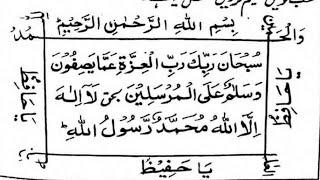 بِسْمِ اللهِ الرَّحْمٰنِ الرَّحِيْمِ
سُبْحَانَ رَبِّكَ رَبِّ الْعِزَّةِ عَمَّا يَصِفُوْنَ
وَسَلٰمٌ عَلَى الْمُرْسَلِيْنَ بحق لَا اِلٰهَ
اِلَّا اللهُ مُحَمَّدٌ رَّسُوْلُ اللهِ ط
يَا حَافِظُ
يَا حَفِيْظُ